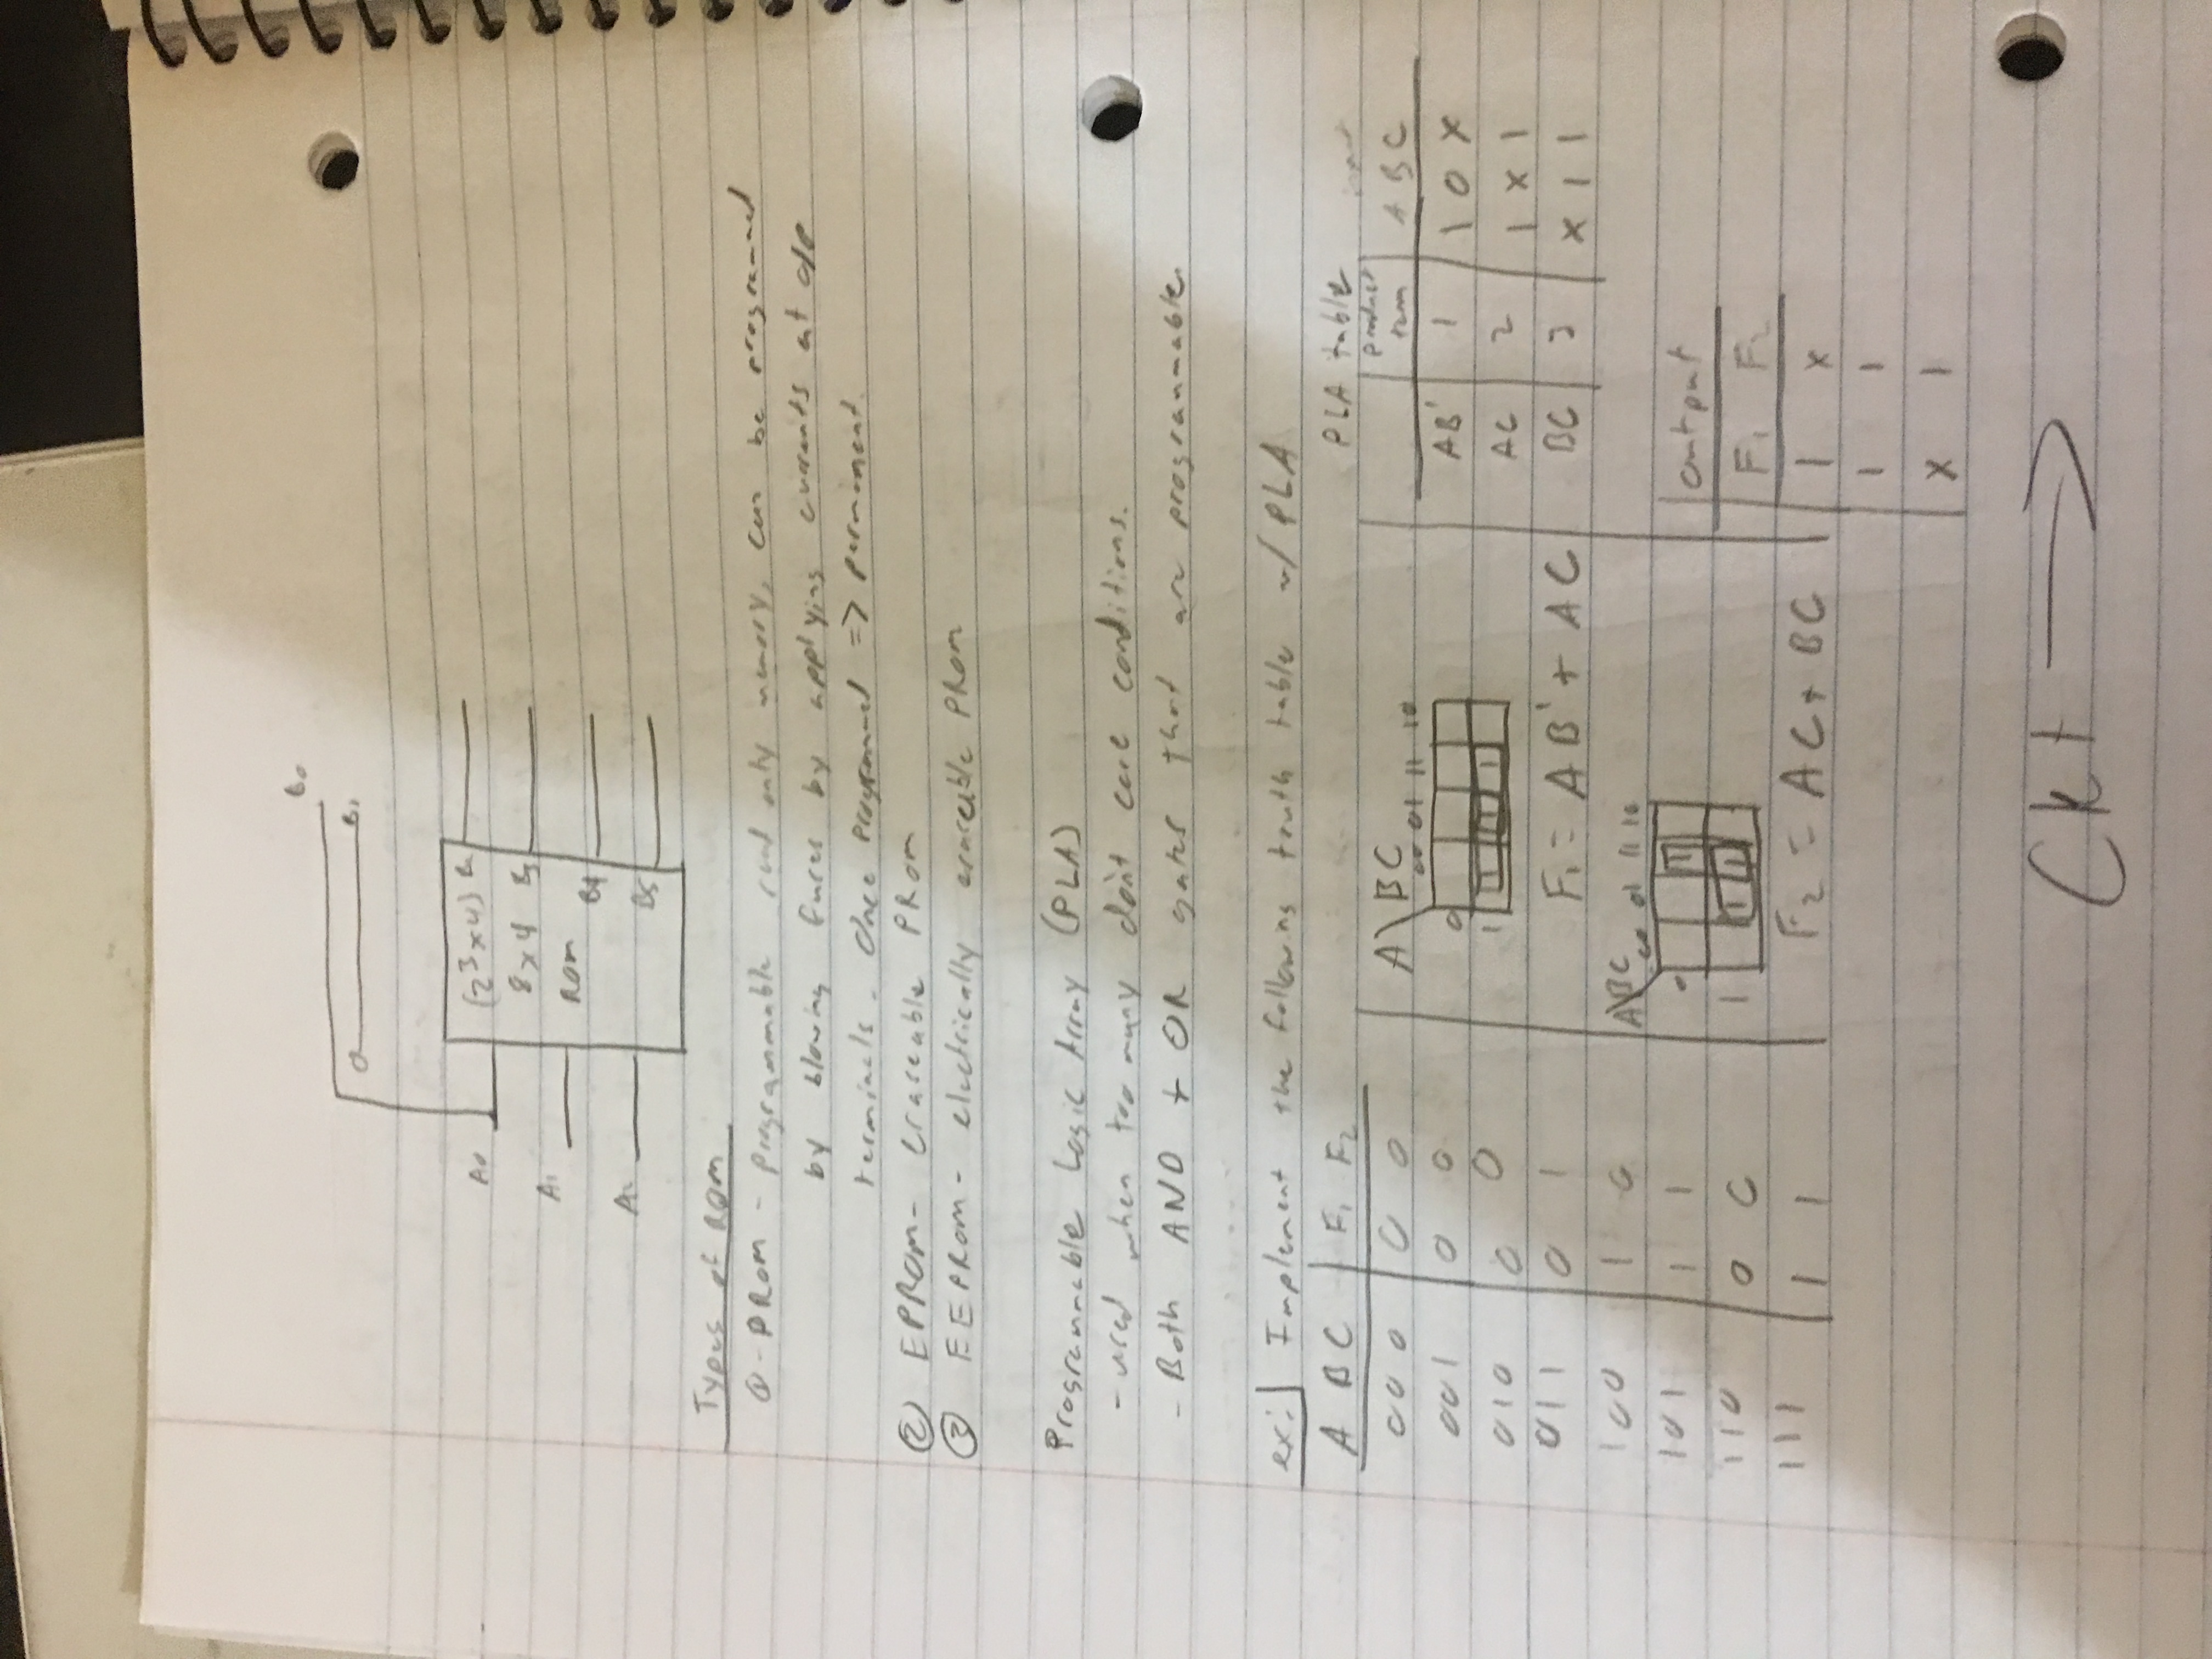 B₀
0 B₁
A₀ (2³x4) B₂
8x4 B₃
A₁ ROM
B4
A₂ B5
Types of ROM
① - PROM - Programmable read only memory, can be programmed
by blowing fuses by applying currents at o/p
terminals. Once Programmed => permanent.
② EPROM - Eraseable PROM
③ EEPROM - electrically eraseable PROM
Programmable Logic Array (PLA)
- used when too many don't care conditions.
- Both AND + OR gates that are programmable.
ex: Implement the following truth table w/ PLA
A B C F₁ F₂
0 0 0 0 0
0 0 1 0 0
0 1 0 0 0
0 1 1 0 1
1 0 0 1 0
1 0 1 1 1
1 1 0 0 0
1 1 1 1 1
A BC
00 01 11 10
0
1 1 1 1
F₁ = AB' + AC
A BC
00 01 11 10
0 1
1 1 1
F₂ = AC + BC
PLA table
product term input
A B C
AB' 1 1 0 x
AC 2 1 x 1
BC 3 x 1 1
output
F₁ F₂
1 x
1 1
x 1
Ckt →